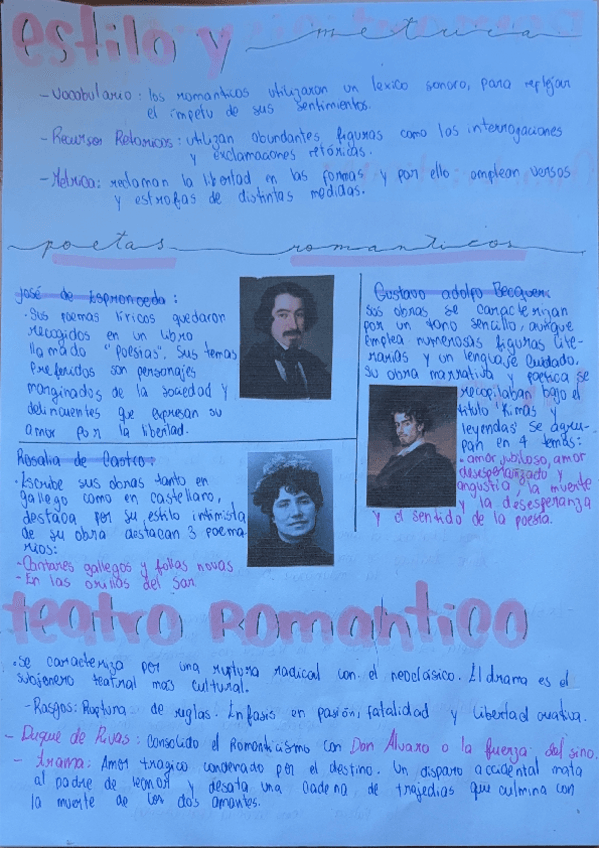 estilo y metrica
- Vocabulario: los romanticos utilizaron un lexico sonoro, para reflejar
el ímpetu de sus sentimientos.
- Recursos Retoricos: utilizan abundantes figuras como las interrogaciones
y exclamaciones retóricas.
- Metrica: reclaman la libertad en las formas y por ello emplean versos
y estrofas de distintas medidas.
poetas romanticos
José de Espronceda:
· Sus poemas líricos quedaron
recogidos en un libro
llamado "Poesías". Sus temas
preferidos son personajes
marginados de la sociedad y
delincuentes que expresan su
amor por la libertad.
Gustavo adolfo Becquer:
sus obras se caracterizan
por un tono sencillo, aunque
emplea numerosas figuras lite-
rarias y un lenguaje cuidado.
su obra narrativa y poetica se
recopilaban bajo el
titulo "Rimas y
leyendas" se agru-
pan en 4 temas:
· amor jubiloso, amor
desesperanzado y
angustia, la muerte
y la desesperanza
y el sentido de la poesía.
Rosalia de Castro:
· Escribe sus obras tanto en
gallego como en castellano,
destaca por su estilo intimista
de su obra destacan 3 poema-
rios:
- Cantares gallegos y follas novas
- En las orillas del Sar
teatro romantico
· Se caracteriza por una ruptura radical con el neoclásico. El drama es el
subgenero teatral mas cultural.
- Rasgos: Ruptura de reglas. Enfasis en pasión, fatalidad y libertad creativa.
- Duque de Rivas: consolido el Romanticismo con Don Alvaro o la fuerza del sino.
- trama: Amor tragico condenado por el destino. Un disparo accidental mata
al padre de leonor y desata una cadena de tragedias que culmina con
la muerte de los dos amantes.